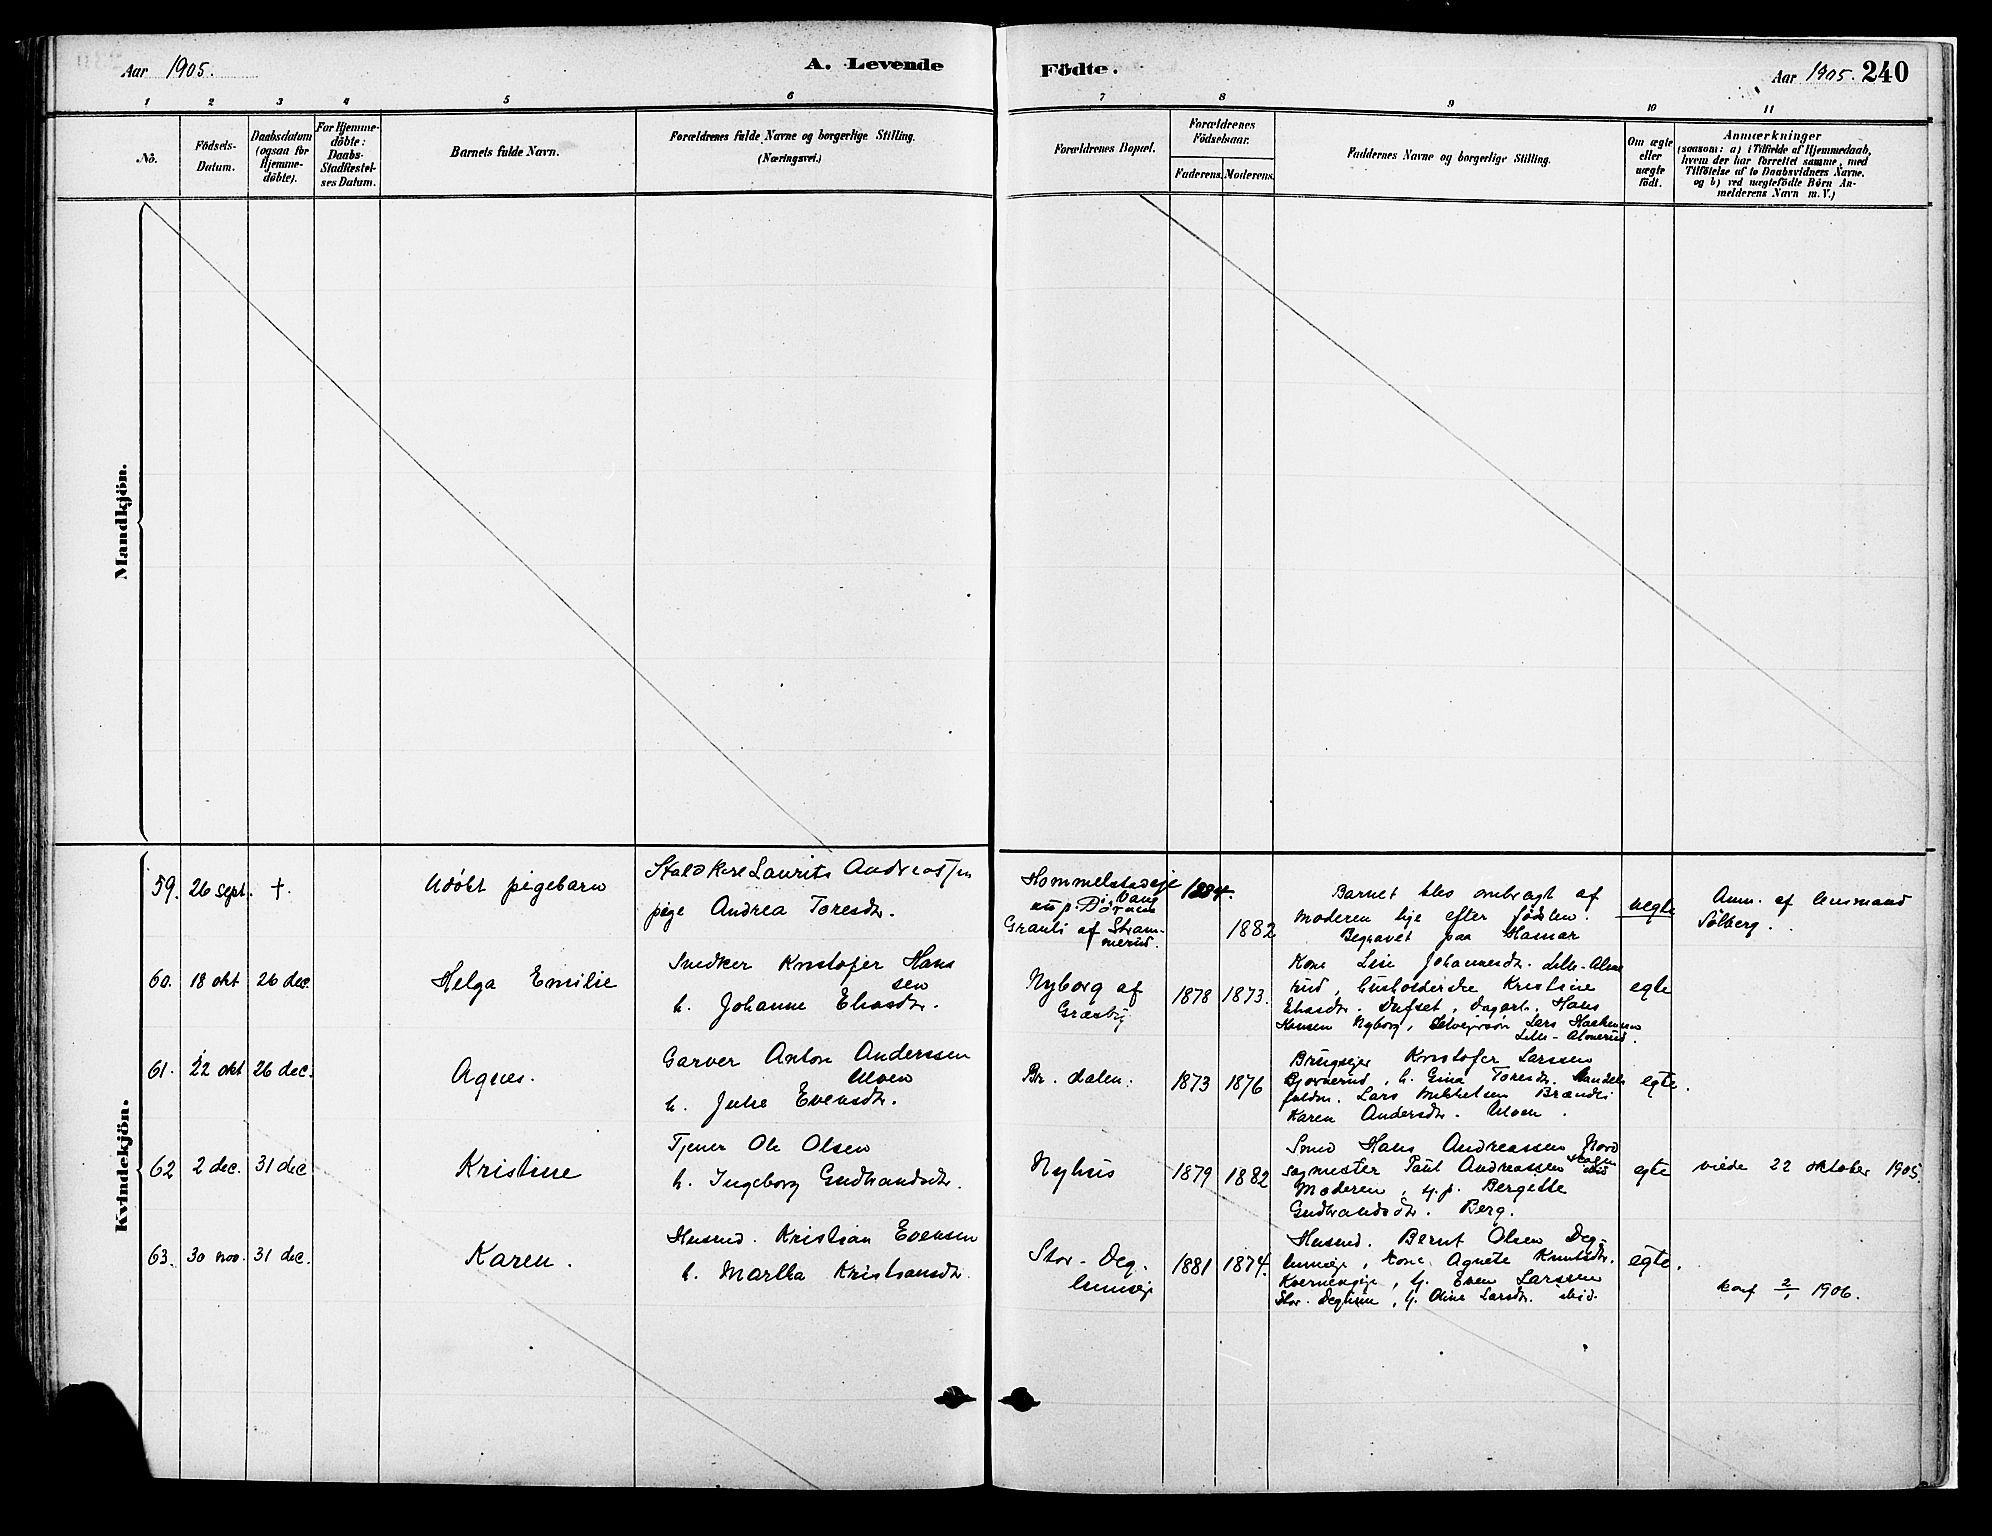 Aar 1905.
A. Levende
Födte.
Aar 1905. 240
1 2 3 4 5 6 7 8 9 10 11
No.
Födsels-
Datum.
Daabsdatum
(ogsaa for
Hjemme-
döbte).
For Hjemme-
döbte:
Daabs-
Stadfæstel-
ses Datum.
Barnets fulde Navn.
Forældrenes fulde Navne og borgerlige Stilling.
(Næringsvei.)
Forældrenes Bopæl.
Forældrenes
Födselsaar.
Faderens. Moderens.
Faddernes Navne og borgerlige Stilling.
Om ægte
eller
uægte
födt.
Anmærkninger
(saasom: a) i Tilfælde af Hjemmedaab,
hvem der har forrettet samme, med
Tilföielse af to Daabsvidners Navne,
og b) ved uægtefödte Börn An-
melderens Navn m. V.)
Mandkjön.
Kvindekjön.
59. 26 sept. †.
Udöbt pigebarn
Staldkarl Laurits Andreassen
pige Andrea Toresdtr.
Hommelstadeje
i Vang
Granli af Stram-
merud.
1884.
1882
Barnet blev ombragt af
Moderen lige efter födslen.
Begravet paa Hamar
uegte
Anm. af lensmand
Sölberg.
60. 18 okt 26 dec.
Helga Emilie
Snedker Kristofer Hans
sen
h. Johanne Eliasdtr.
Nyborg af
Græsby
1878 1873.
Kone Lise Johannesdtr. Lille-Alme
rud, husholderske Kristine
Eliasdtr. Dufset, dagarb. Hans
Hansen Nyborg, Selvejersön Lars Haakensen
Lille-Almerud.
egte
61. 22 okt 26 dec.
Agnes.
Garver Anton Anderssen
Ulven
h. Julie Evensdtr.
Br. dalen.
1873 1876
Brugsejer Kristofer Larssen
Bjørnerud, h. Gina Toresdtr. Handels
fuldm. Lars Mikkelsen Brænden
Karen Andersdtr. Ulven.
egte.
62 2 dec. 31 dec
Kristine
Tjener Ole Olsen
h. Ingeborg Gudbrandsdtr.
Nyhus
1879 1882
Smed Hans Andreassen Nord
sagmester Paul Andreassen
Moderen, g.p. Bergette
Gudbrandsdtr. Berg.
egte
viede 22 oktober 1905.
63. 30 nov. 31 dec.
Karen.
Husmd. Kristian Evensen
h. Martha Kristiansdtr.
Stor-Deg-
lumseje
1881 1874.
Husmd. Bernt Olsen Deg-
lumseje, kone Agnete Knutsdtr.
Kvernengeje, g. Even Larssen
Stor-Deglum, g. Oline Larsdtr. ibid.
egte.
konf 2/1 1906.